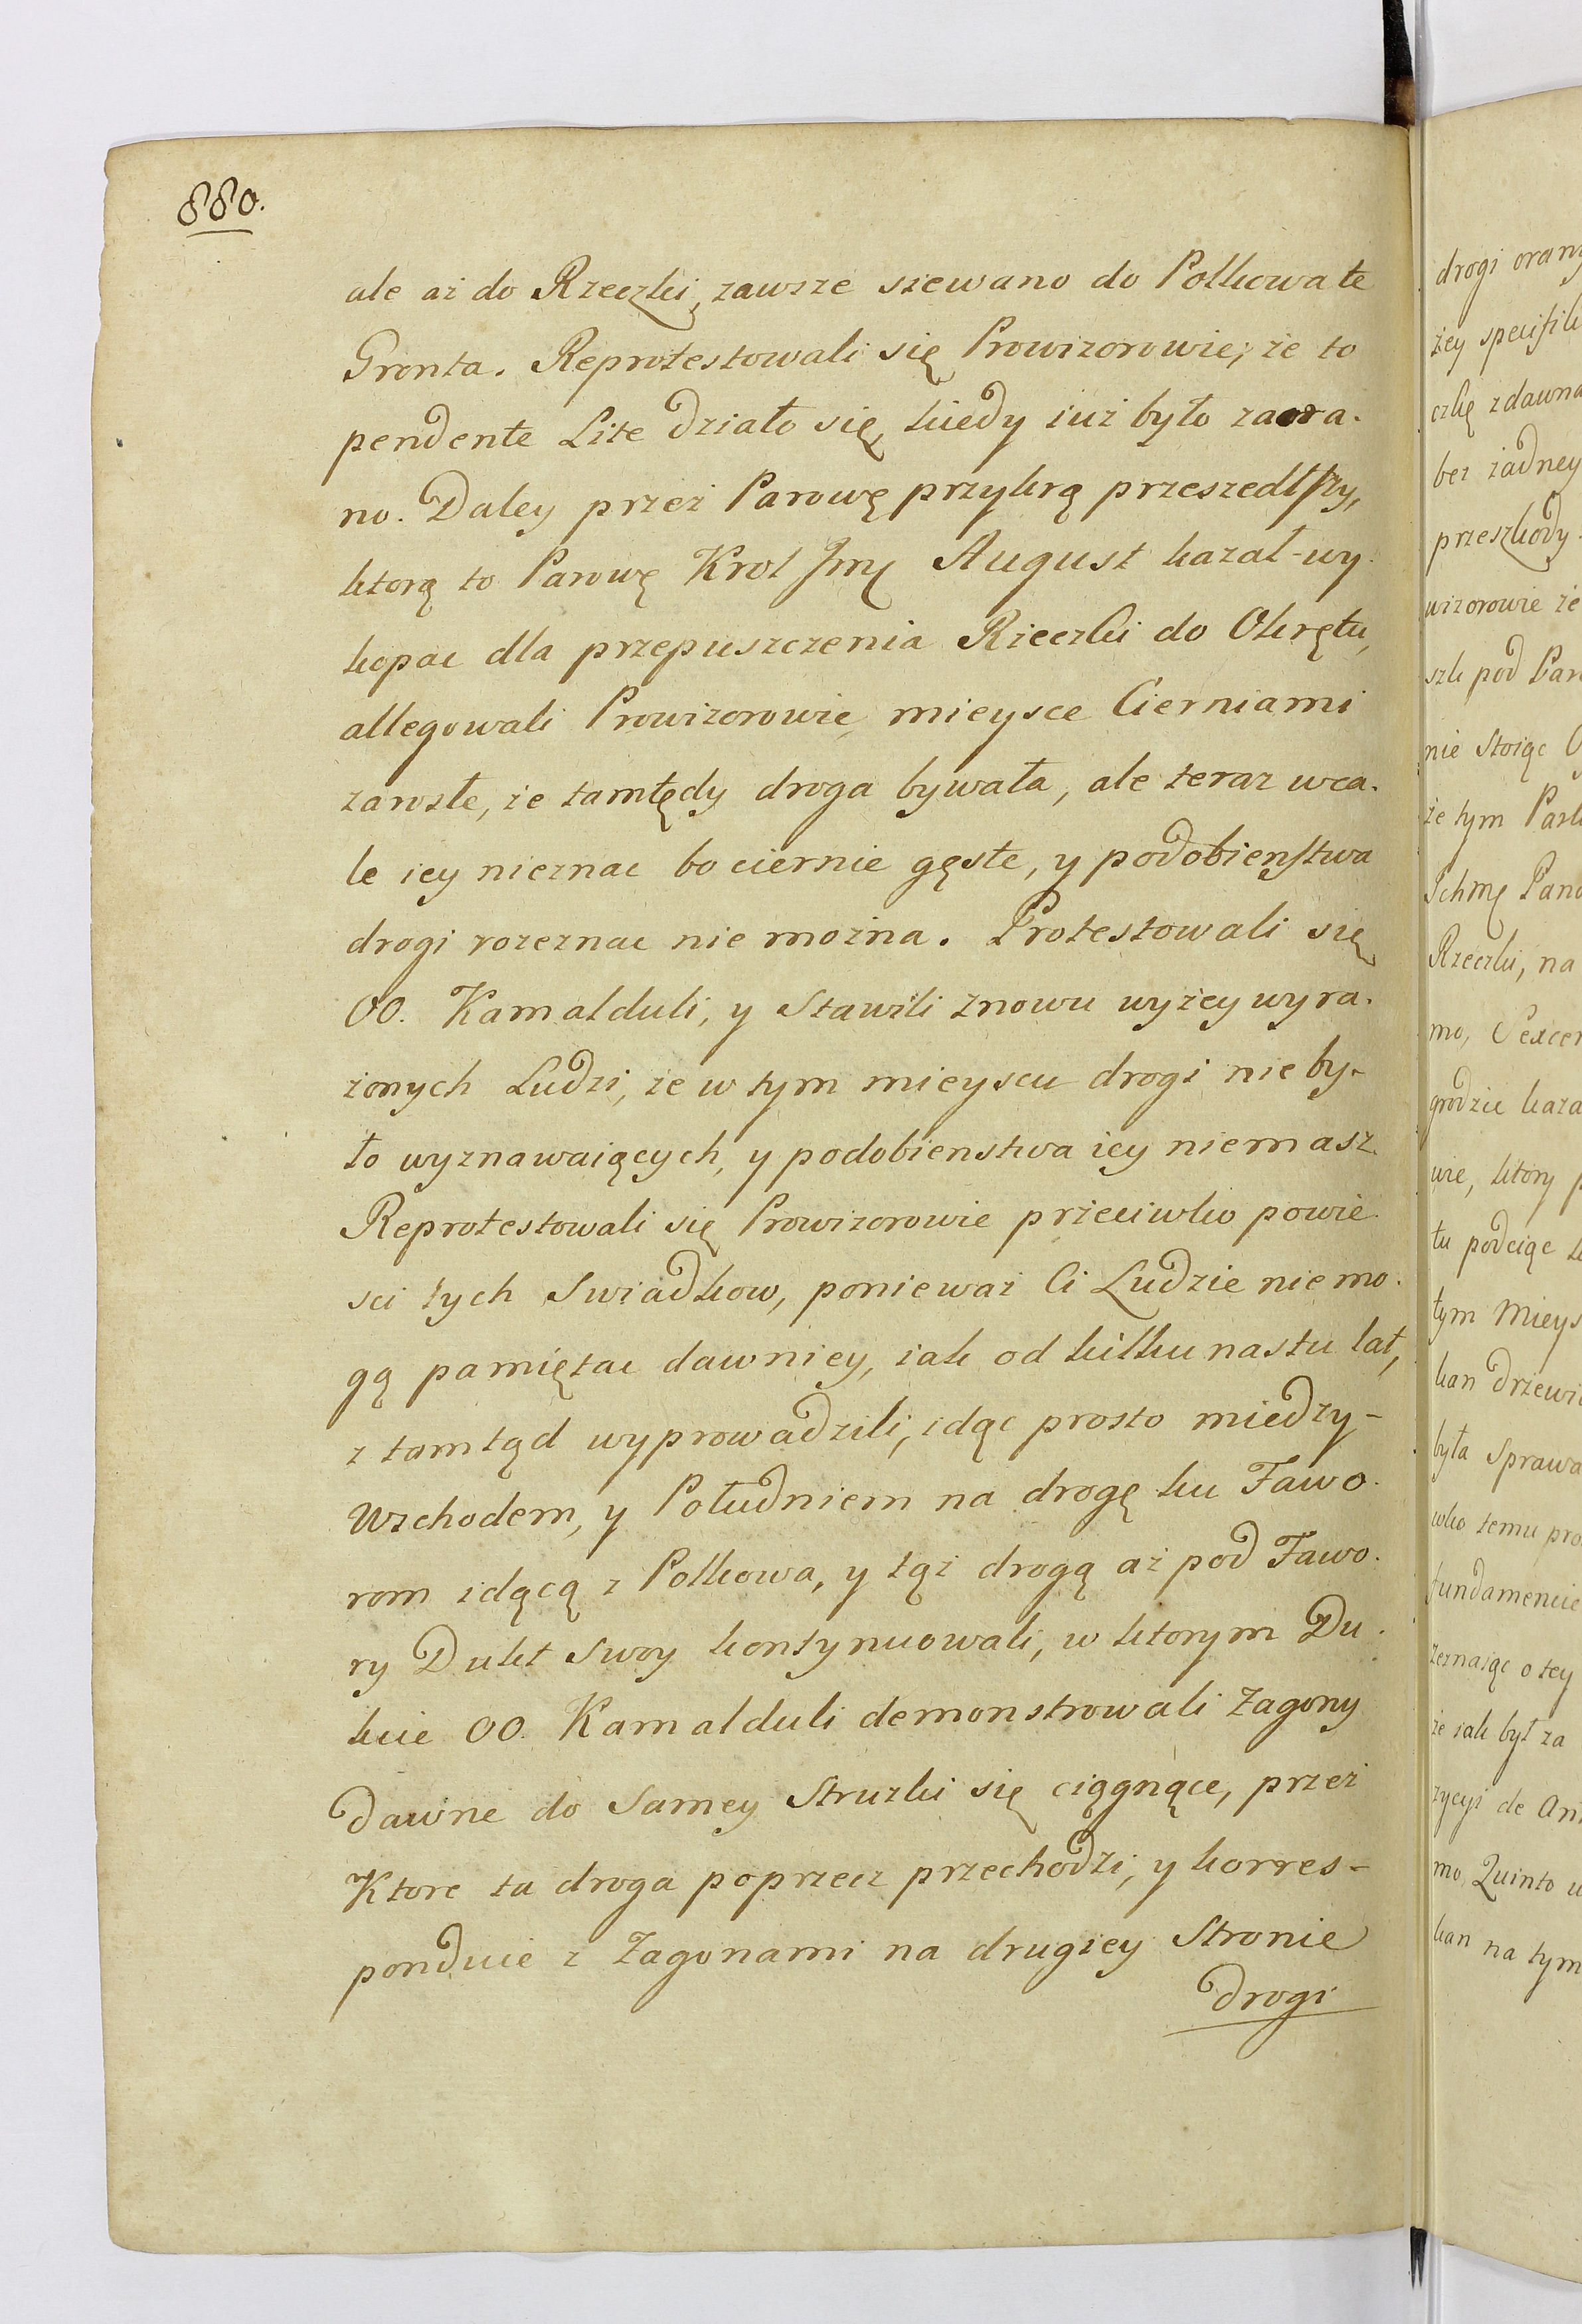 880.
ale aż do Rzeczki, zawsze siewano do Polkowa te
Gronta. Reprotestowali się Prowizorowie, że to
pendente Lite działo się, kiedy iuż było zaora-
no. Daley przez Parowę przykrą przeszedłszy,
ktorą to Parowę Krol Jmć August kazał wy-
kopac dla przepuszczenia Rzeczki do Okrętu,
allegowali Prowizorowie mieysce Cierniami
zarosłe, że tamtędy droga bywała, ale teraz wca-
le iey nieznac bo ciernie gęste, y podobienstwa
drogi rozeznac nie można. Protestowali się
OO. Kamalduli, y Stawili znowu wyżey wyra-
żonych Ludzi, że w tym mieyscu drogi nie by-
ło wyznawaiących, y podobienstwa iey niemasz.
Reprotestowali się Prowizorowie przeciwko powie-
sci tych Swiadkow, ponieważ Ci Ludzie niemo-
gą pamiętac dawniey, iak od kilkunastu lat,
z tamtąd wyprowadzili, idąc prosto miedzy-
Wschodem, y Południem na drogę ku Fawo-
rom idącą z Polkowa, y tąż drogą aż pod Fawo-
ry Dukt Swoy kontynuowali, w ktorym Du-
kcie OO. Kamalduli demonstrowali Zagony
dawne do Samey Struzki się ciągnące, przez
Ktore ta droga poprzecz przechodzi, y korres-
ponduie z Zagonami na drugiey Stronie
drogi
drogi orany
żey specifik
czkę zdawna
bez żadney
przeszkody.
wizorowie że
szk pod Par
nie Stoiąc
że tym Park
Ichmć Pano
Rzeczki, na
mo, Sexcen
grodzie kaza
wie, ktory p
tu podciąc k
tym Mieys
kan drzewi
była Sprawa
wko temu pro
fundamencie
zeznaiąc o tey
że iak był za
zycyi de An
mo, Quinto u
kan na tym